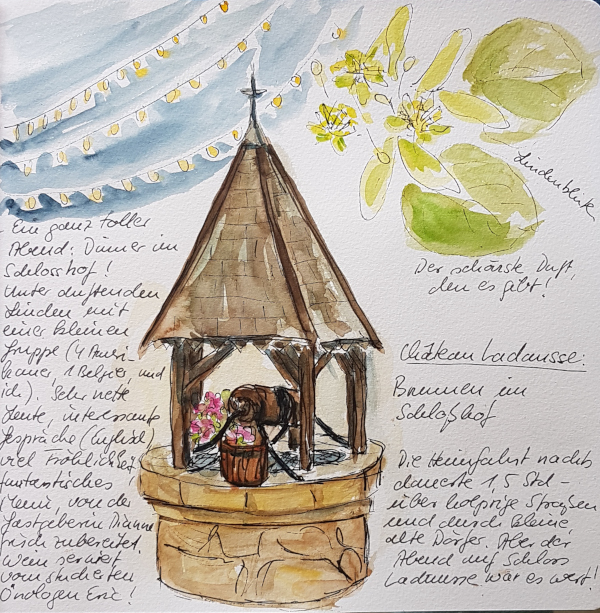 Ein ganz toller
Abend: Dinner im
Schlosshof!
Unter duftenden
Linden mit
einer kleinen
Gruppe (4 Ameri-
kaner, 1 Belgier, und
ich). Sehr nette
Leute, interessante
Gespräche (Englisch)
viel Fröhlichkeit
fantastisches
Menü, von der
Gastgeberin
frisch zubereitet.
Wein serviert
vom studierten
Önologen Eric!
Lindenblüte
Der schönste Duft,
den es gibt!
Château Ladausse:
Brunnen im
Schloßhof
Die Heimfahrt nachts
dauerte 1,5 Std -
über holprige Straßen
und durch kleine
alte Dörfer. Aber der
Abend auf Schloss
Ladausse war es wert!